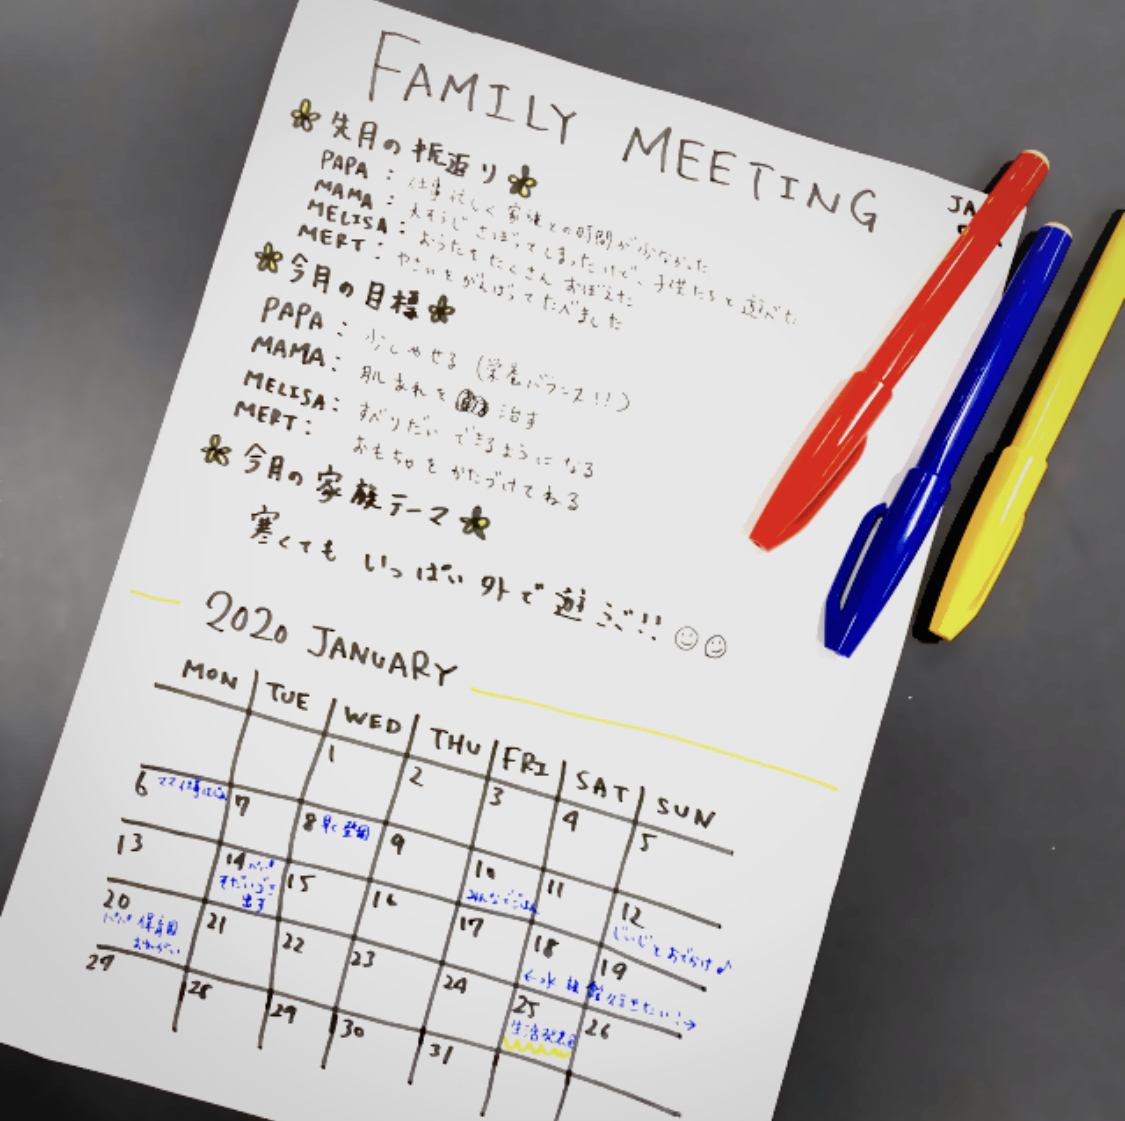 FAMILY MEETING
JA
先月の振返り
PAPA : 仕事忙しく家族との時間が少なかった
MAMA : 大そうじさぼってしまったけど、子供たちと遊べた
MELISA : おうたをたくさんおぼえた
MERT : やさいをがんばってたべました
今月の目標
PAPA : 少しやせる (栄養バランス!!)
MAMA : 肌あれを 治す
MELISA : すべりだいできるようになる
MERT : おもちゃをかたづけてねる
今月の家族テーマ
寒くても いっぱい外で遊ぶぞ!!
2020 JANUARY
MON TUE WED THU FRI SAT SUN
1 2 3 4 5
6 ママ仕事はじめ 7 8 早く登園 9 10 みんなでごはん 11 12 じいじとおでかけ♪
13 14 パパ 粗だいごみ 出す 15 16 17 18 19
←水族館 行きたい!→
20 パパ 保育園 おねがい 21 22 23 24 25 生活発表会 26
27 28 29 30 31